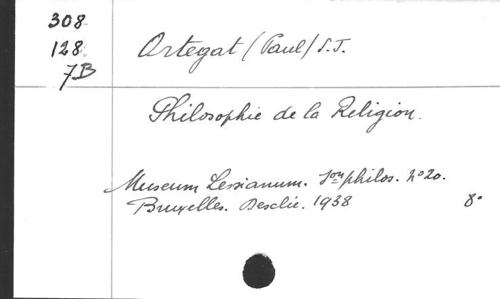 308
128
7B
Ortegat (Paul) S.J.
Philosophie de la Religion.
Museum Lessianum. Son philos. No 20.
Bruxelles. Desclée. 1938 8°